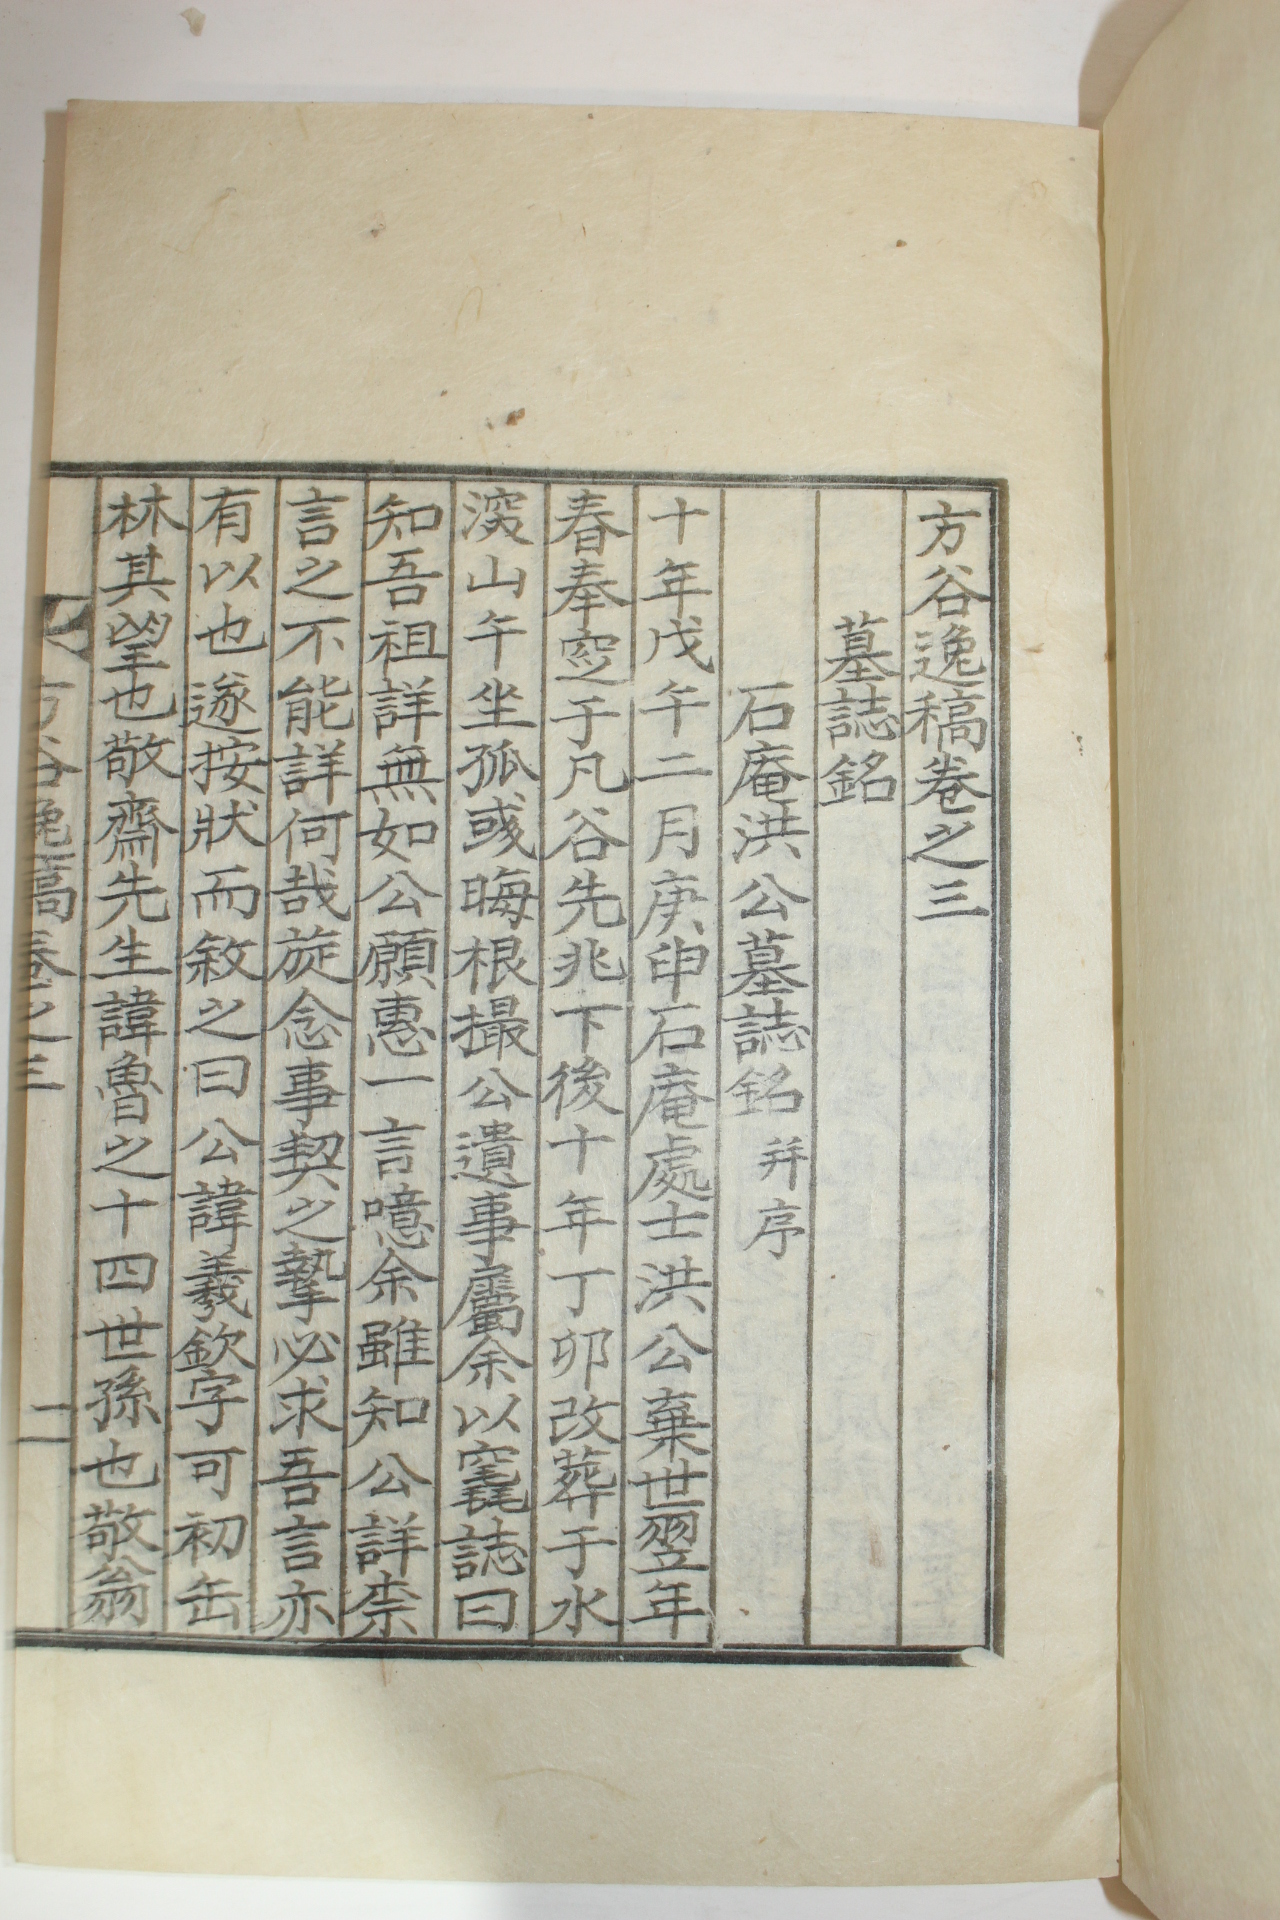 方谷逸稿卷之三
墓誌銘
石庵洪公墓誌銘 并序
十年戊午二月庚申石庵處士洪公棄世翌年
春奉窆于凡谷先兆下後十年丁卯改葬于水
滾山午坐孤彧晦根撮公遺事屬余以竁誌曰
知吾祖詳無如公願惠一言噫余雖知公詳柰
言之不能詳何哉旋念事契之摯必求吾言亦
有以也遂按狀而敘之曰公諱羲欽字可初缶
林其望也敬齋先生諱魯之十四世孫也敬翁
方谷逸稿卷之三 一